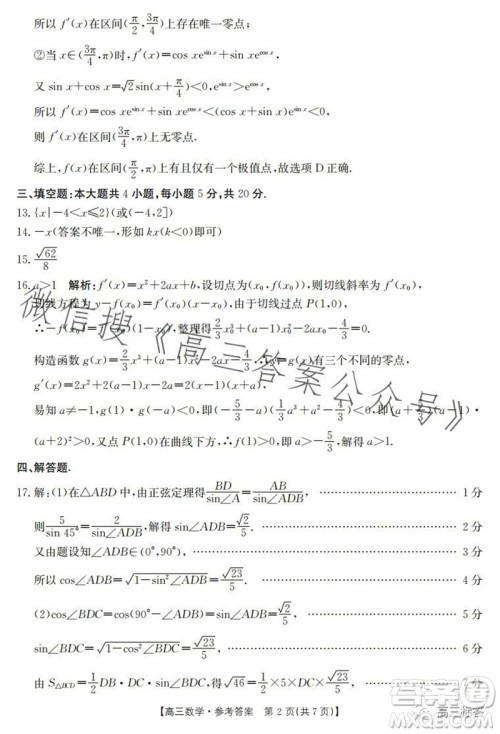 所以 f′(x) 在区间(π/2, 3π/4)上存在唯一零点；
②当 x∈(3π/4,π)时，f′(x)=cos xe^{sin x}+sin xe^{cos x}，
又 sin x+cos x=√2sin(x+π/4)<0，
所以 f′(x)=cos xe^{sin x}+sin xe^{cos x}<0，
则 f′(x)在区间(3π/4,π)上无零点．
综上，f(x)在区间(π/2,π)上有唯一一个极值点，故选项 D 正确．
三、填空题：本大题共 4 小题，每小题 5 分，共 20 分．
13.{x|-4<x≤2}(或(-4,2])
14.-x(答案不唯一，形如 kx(k<0)即可)
15.√62/8
16.a>1 解析：f′(x)=x²+2ax+b，设切点为(x₀,f(x₀))，则切线斜率为 f′(x₀)
切线方程为 y-f(x₀)=f′(x₀)(x-x₀)，由于切线过点 P(1,0)，
∴-f(x₀)=f′(x₀)(1-x₀)，整理得 2/3x₀³+(a-1)x₀²-2ax₀-4/3=0．
构造函数 g(x)=2/3x³+(a-1)x²-2ax-4/3，∴g(x)有三个不同的零点，
g′(x)=2x²+2(a-1)x-2a=2(x-1)(x+a)，
易知 a≠-1，g(1)·g(-a)=(-5/3-a)(1/3a³+a²-4/3)<0，∴(a+5/3)(a-1)·
(a+2)²>0，又点 P(1,0)在曲线下方，∴f(1)=a+5/3>0，∴a>1．
四、解答题．
17.解：(1)在△ABD 中，由正弦定理得 BD/sin∠A=AB/sin∠ADB， 1 分
则 5/sin 45°=2/sin∠ADB，所以 sin∠ADB=√2/5． 2 分
又由题设知∠ADB∈(0°,90°)， 3 分
所以 cos∠ADB=√(1-sin²∠ADB)=√23/5． 4 分
(2)cos∠BDC=cos(90°-∠ADB)=sin∠ADB=√2/5， 5 分
sin∠BDC=√(1-cos²∠BDC)=√23/5． 6 分
由 S△BCD=1/2×BD×CD×sin∠BDC=1/2
【高三数学·参考答案 第 2 页(共 7 页)】
微信搜《高三答案公众号》